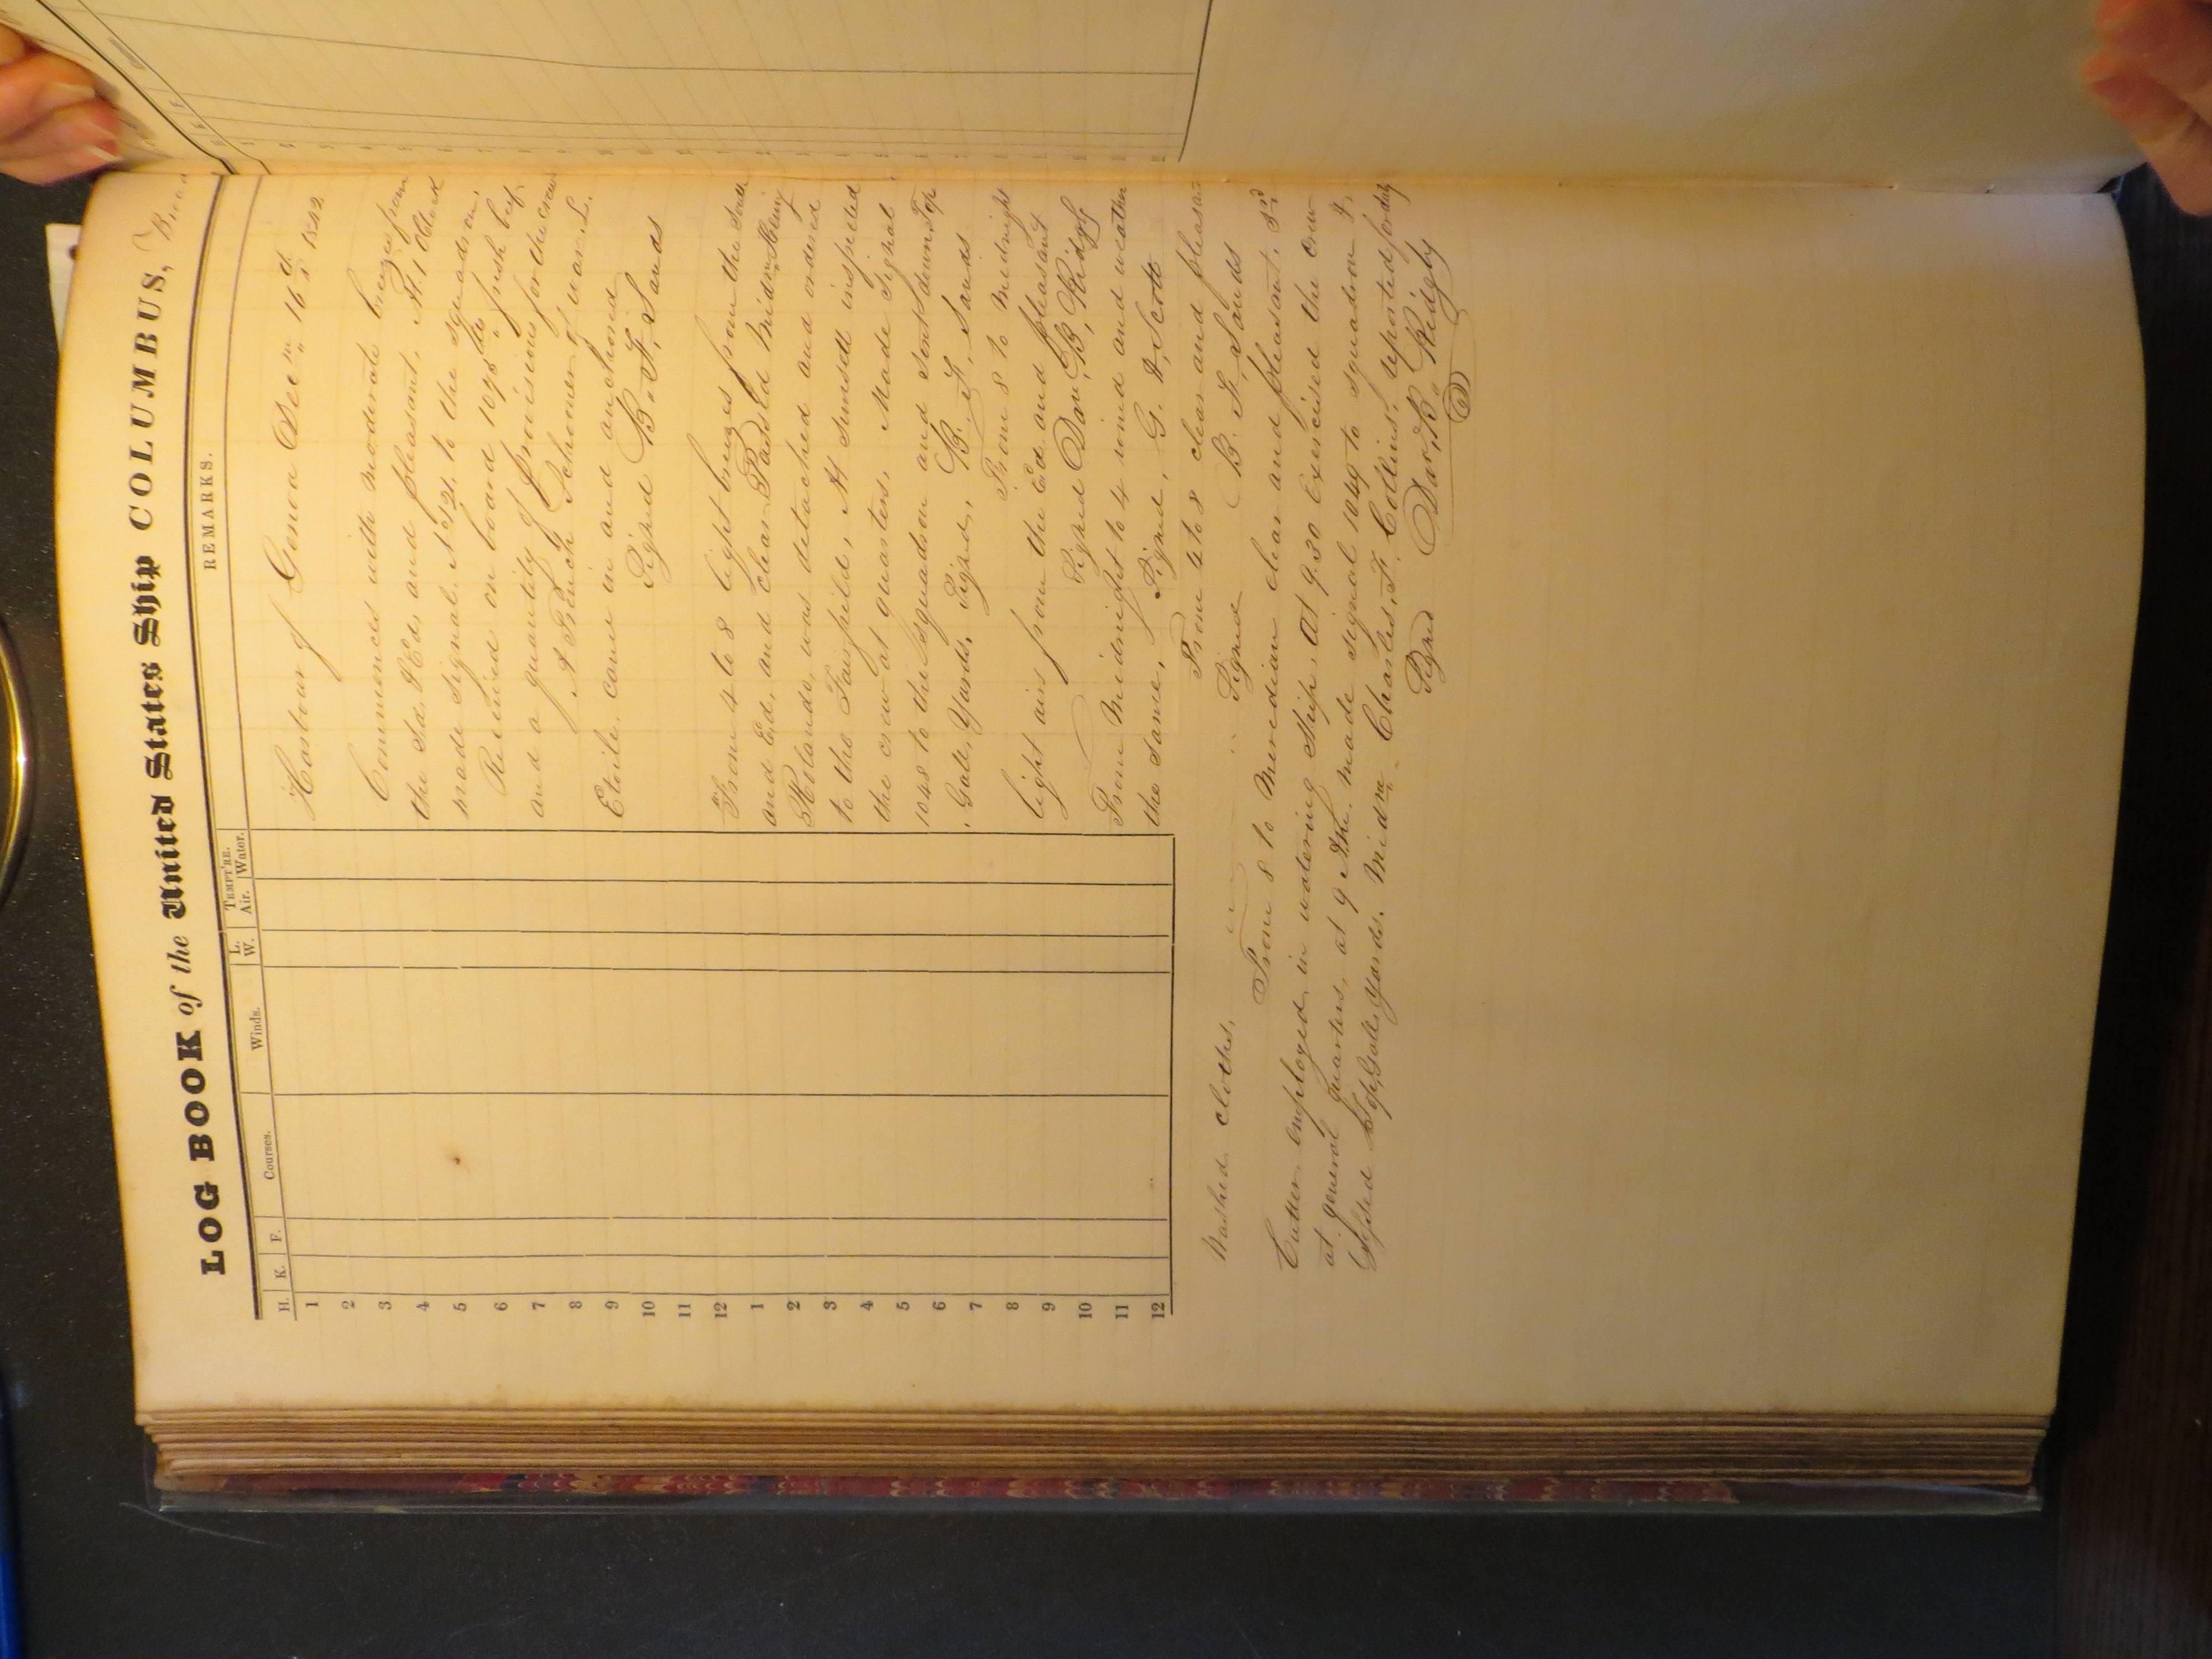 LOG BOOK of the United States Ship COLUMBUS,
H. K. F. Courses. Winds. L. W. TEMPT'RE. Air. Water. REMARKS.
1
2
3
4
5
6
7
8
9
10
11
12
1
2
3
4
5
6
7
8
9
10
11
12
Harbour of Genoa Decm 16th 1842
Commences with moderate breezes from
the Sd. & Ed. and pleasant. At 1 Oclock
made Signal. No 121. to the squadron.
Received on board 1098 lbs fresh beef
and a quantity of provisions for the crew
A French Schooner of war L.
Etoile, came in and anchored
Signed B. F. Sands
From 4 to 8 light breezes from the South
and Ed. and clear Passed Midm Henry
Rolando, was detached and ordered
to the Fairfield, At Sunsett inspected
the crew at quarters. Made Signal
1048 to the Squadron and Sent down Top
Gallt Yards, Signed, B. F. Sands
From 8 to Midnight
light airs from the Ed and pleasant
Signed Danl B, Ridgly
From Midnight to 4 wind and weather
the same, Signed, G. H, Scott
From 4 to 8 clear and pleasant
Washed clothes, Signed B. F. Sands
From 8 to Meredian clear and pleasant. 3rd
Cutter employed in watering Ship. At 9.30 Exercised the crew
at general quarters, at 9 AM. made signal 1049 to squadron &
Top, Gallt, yards. Midm Charles, F. Collins, reported for duty
Signed Danl, B. Ridgly